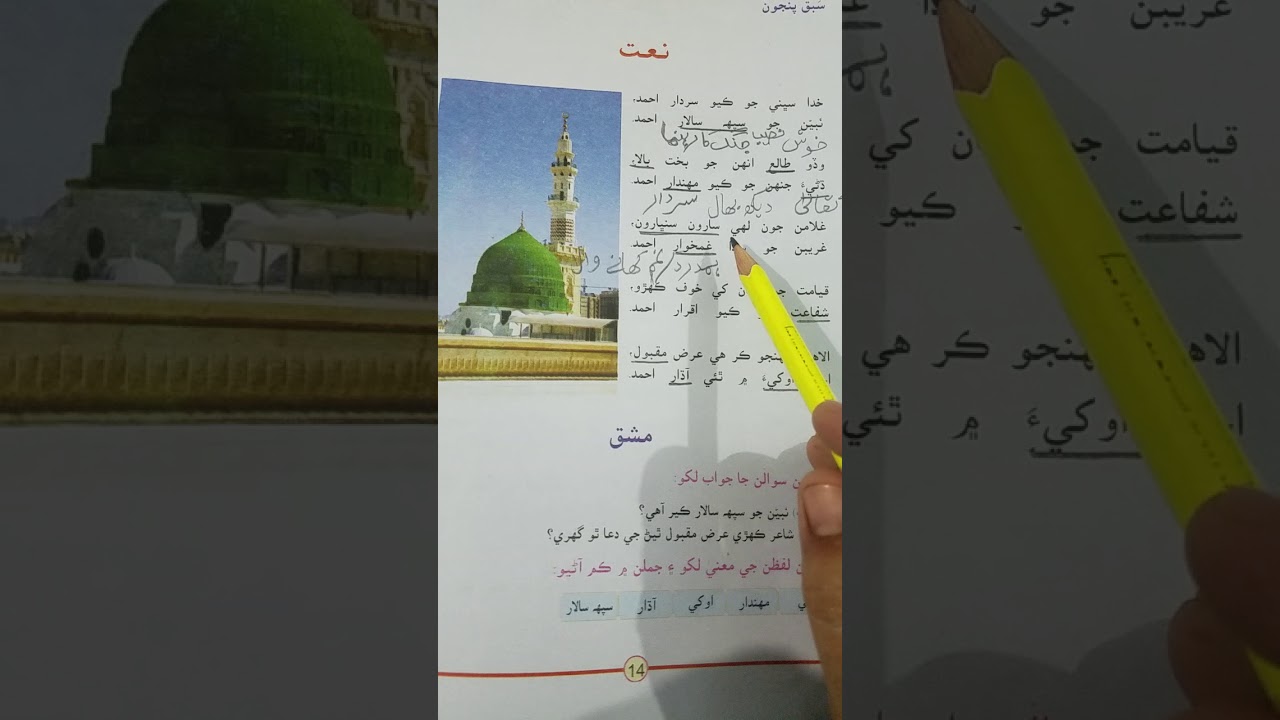 سبق پنجون
نعت
خدا سڀني جو ڪيو سردار احمد،
نبين جو سپھ سالار احمد.
خوش نصیب جنگ کا رہنما
وڏو طالع انهن جو بخت بالا،
ڌڻيءَ جنهن جو ڪيو مهندار احمد.
دیکھ بھال سردار
غلامن جون لهي سارون سنڀارون،
غريبن جو غمخوار احمد.
ہمدرد / غم کھانے والا
قيامت جي کي خوف ڪهڙو،
شفاعت ڪيو اقرار احمد.
منهنجو ڪر هي عرض مقبول،
اوکيءَ ۾ ٿئي آڌار احمد.
مشق
سوالن جا جواب لکو:
نبين جو سپھ سالار ڪير آهي؟
شاعر ڪهڙي عرض مقبول ٿيڻ جي دعا ٿو گهري؟
لفظن جي معنيٰ لکو ۽ جملن ۾ ڪم آڻيو:
مهندار اوکي آڌار سپھ سالار
14